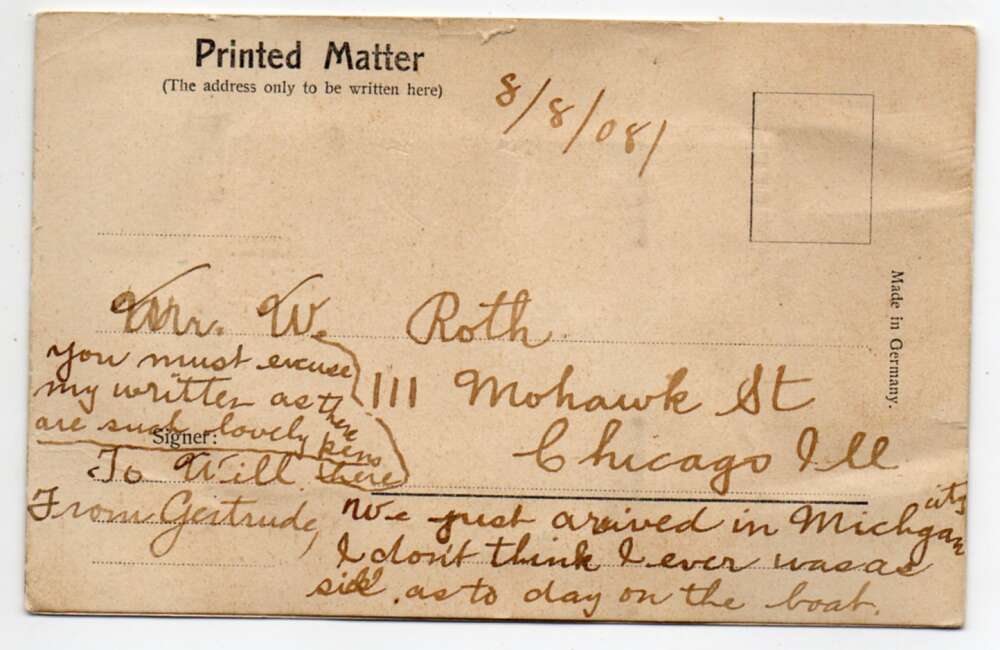 Printed Matter
(The address only to be written here)
8/8/08/
Made in Germany.
Mr. W. Roth
111 Mohawk St
Chicago Ill
you must excuse
my written as there
are such lovely pens
there
Signer:
To Will
From Gertrude,
We just araived in Michgan city
I don't think I ever was as
sick as to day on the boat.